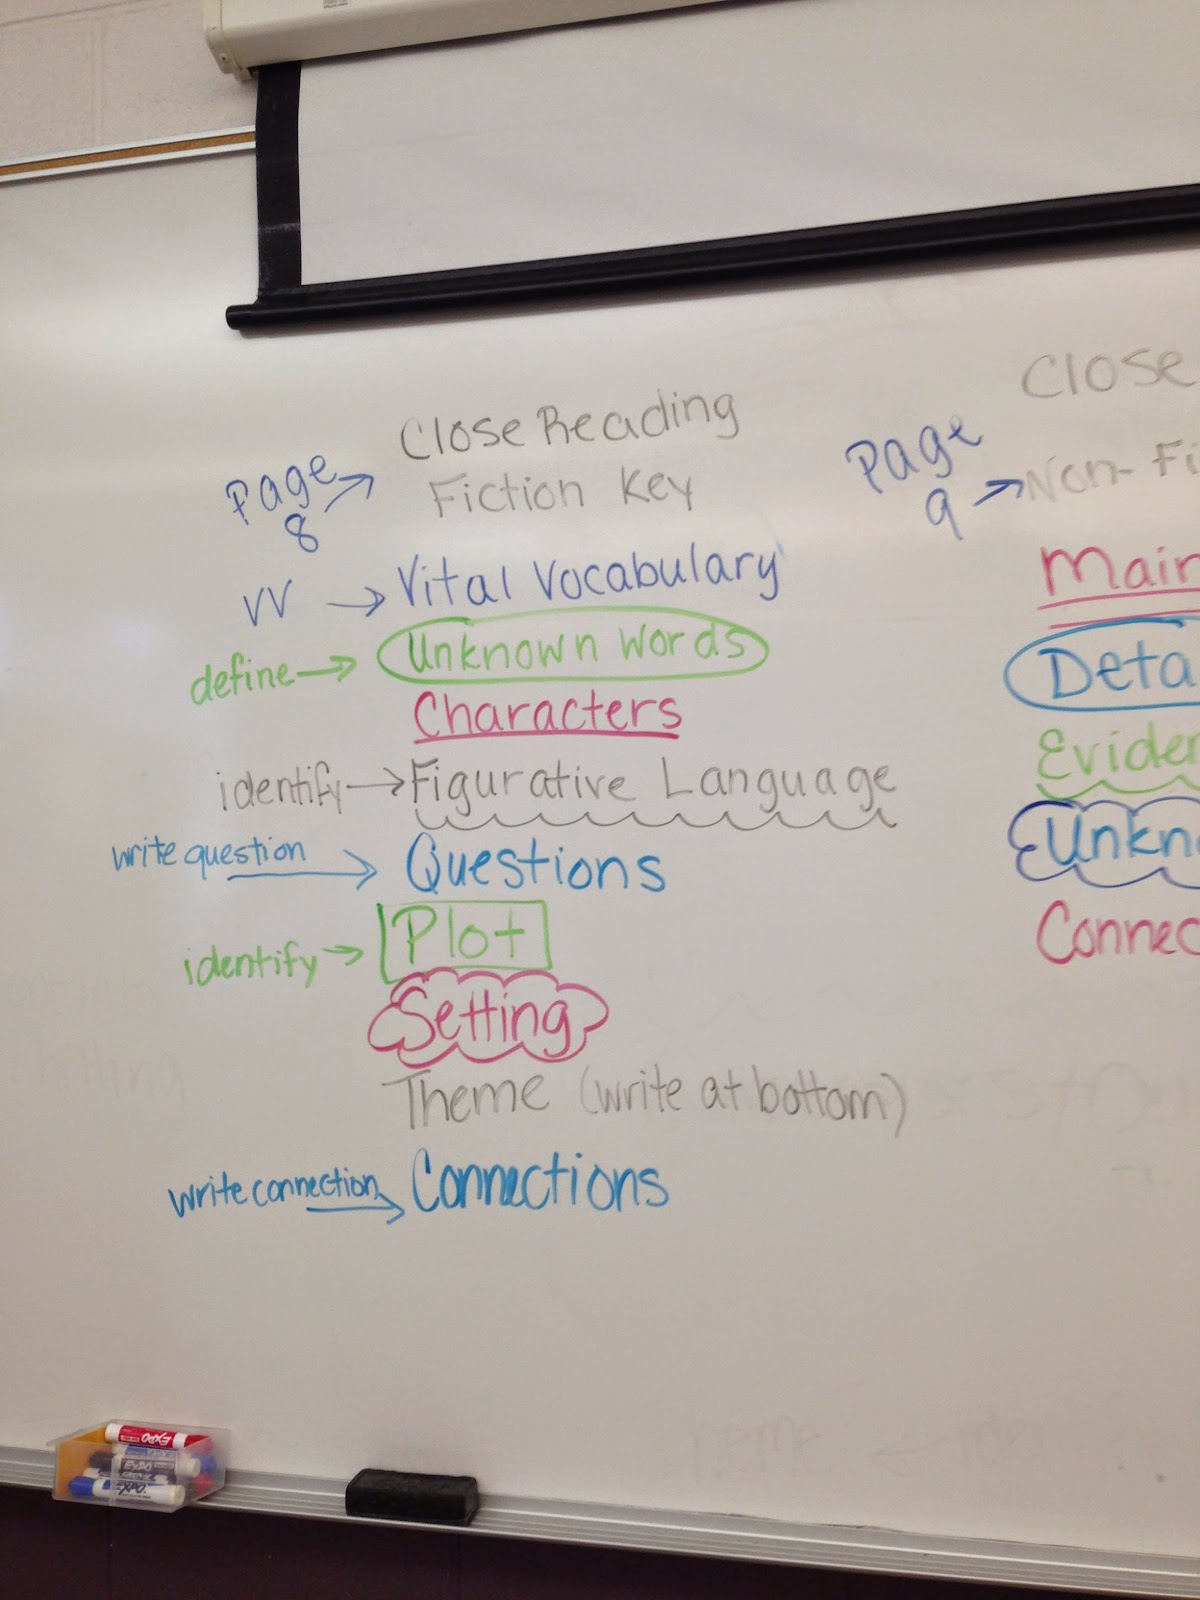 Close Reading
Page → Fiction Key
8
VV → Vital Vocabulary
define → Unknown words
Characters
identify → Figurative Language
write question → Questions
identify → Plot
Setting
Theme (write at bottom)
write connection → Connections
Close
Page → Non-Fi
9
Main
Deta
Eviden
Unkn
Connec
EXPO
EXPO
EXPO